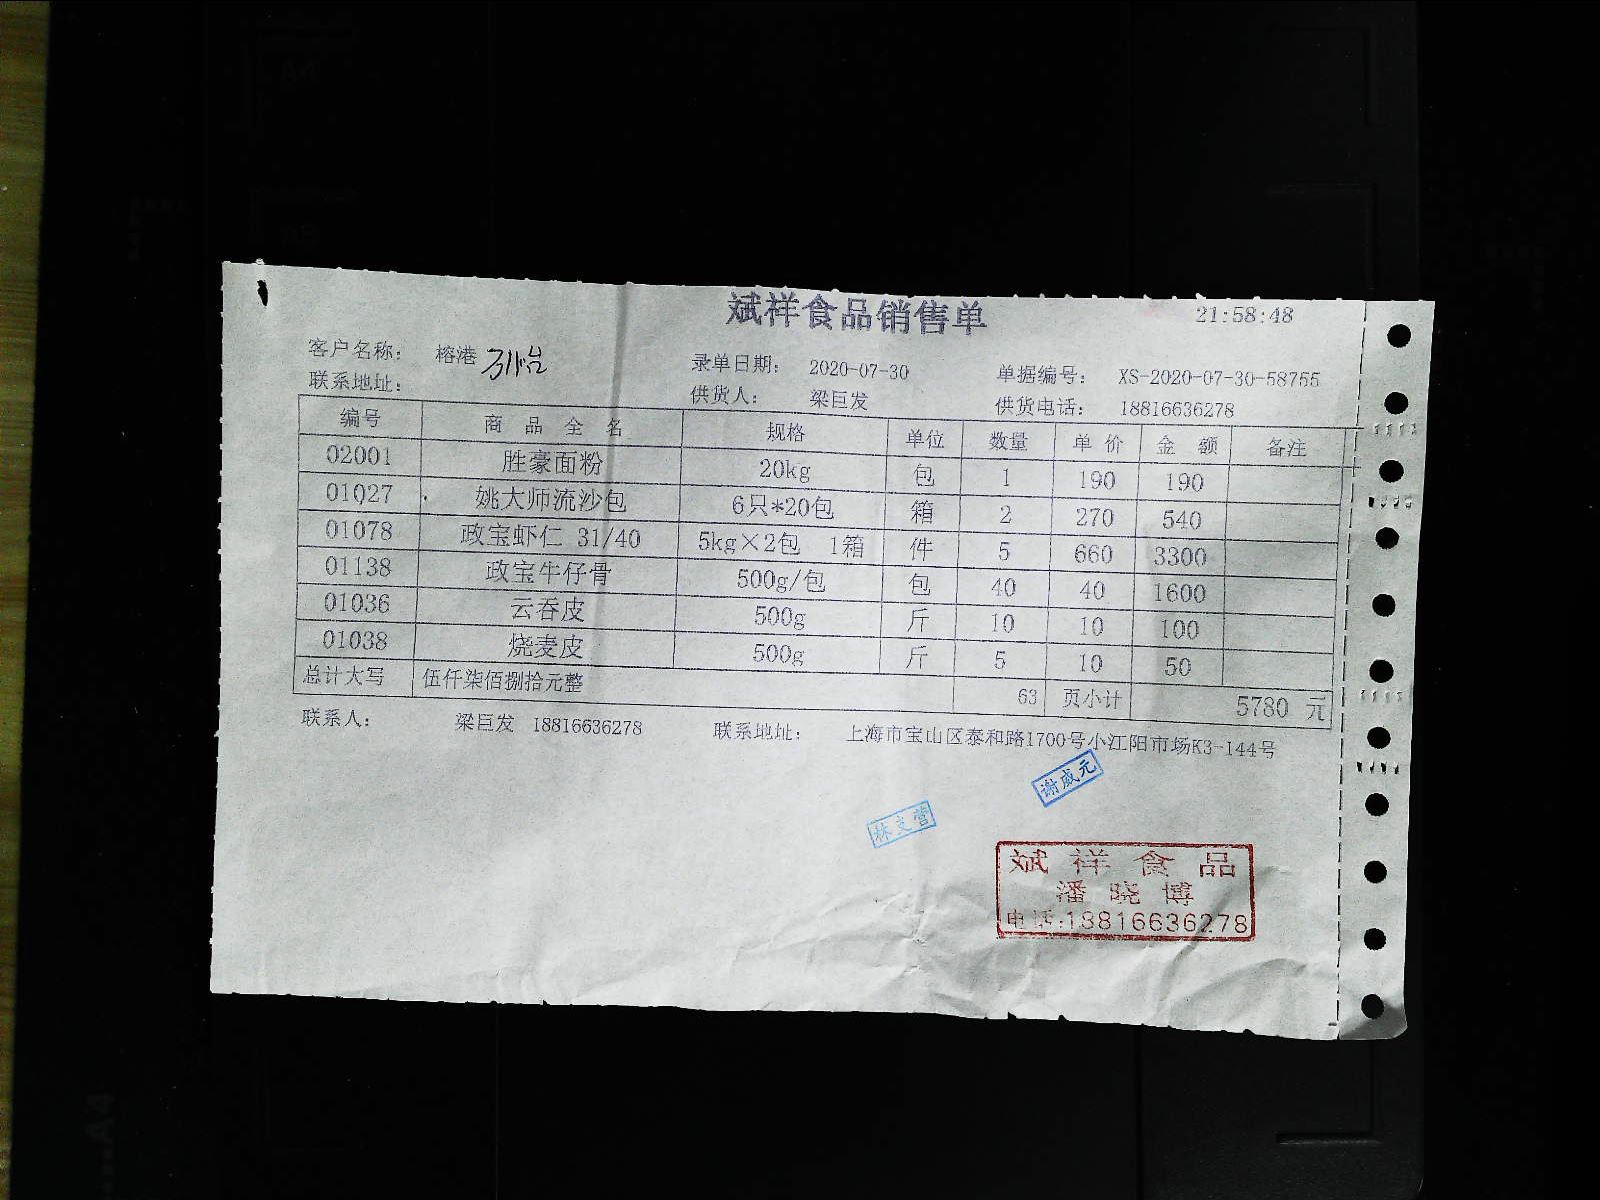 斌祥食品销售单 21:58:48
客户名称： 榕港 录单日期： 2020-07-30 单据编号： XS-2020-07-30-58755
联系地址： 供货人： 梁巨发 供货电话： 18816636278
编号 商品全名 规格 单位 数量 单价 金额 备注
02001 胜豪面粉 20kg 包 1 190 190
01027 姚大师流沙包 6只*20包 箱 2 270 540
01078 政宝虾仁 31/40 5kg×2包 1箱 件 5 660 3300
01138 政宝牛仔骨 500g/包 包 40 40 1600
01036 云吞皮 500g 斤 10 10 100
01038 烧麦皮 500g 斤 5 10 50
总计大写 伍仟柒佰捌拾元整 63 页小计 5780 元
联系人： 梁巨发 18816636278 联系地址： 上海市宝山区泰和路1700号小江阳市场K3-144号
谢威元
林文营
斌祥食品
潘晓博
电话:18816636278